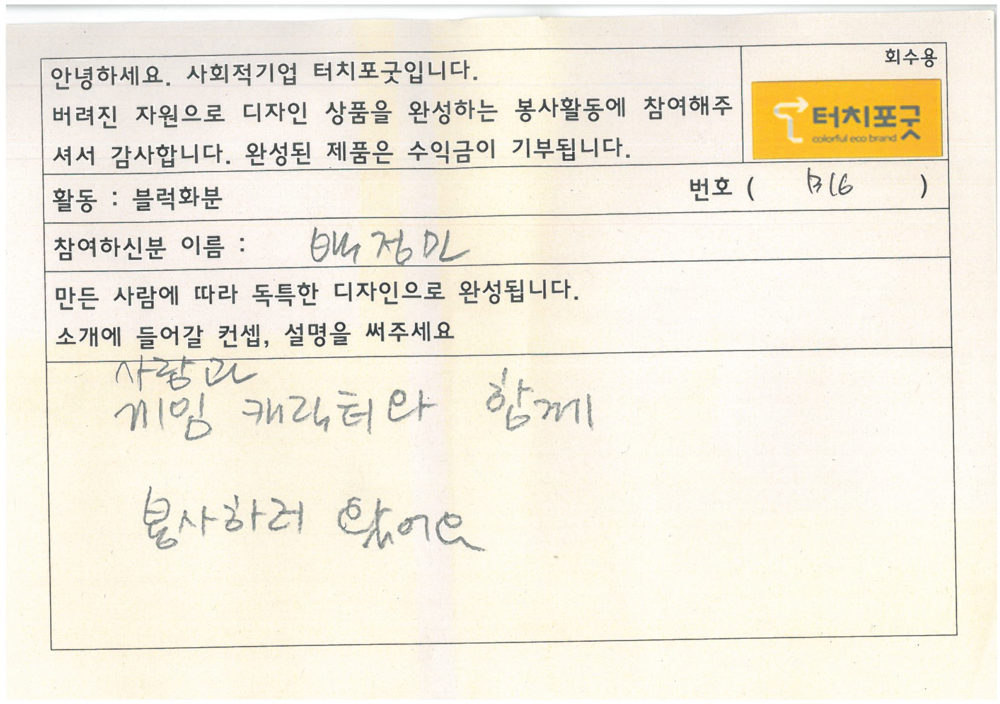 회수용
안녕하세요. 사회적기업 터치포굿입니다.
버려진 자원으로 디자인 상품을 완성하는 봉사활동에 참여해주
셔서 감사합니다. 완성된 제품은 수익금이 기부됩니다.
터치포굿
colorful eco brand
활동 : 블럭화분
번호 ( B16 )
참여하신분 이름 : 백정민
만든 사람에 따라 독특한 디자인으로 완성됩니다.
소개에 들어갈 컨셉, 설명을 써주세요
사람과
게임 캐릭터와 함께
봉사하러 왔어요